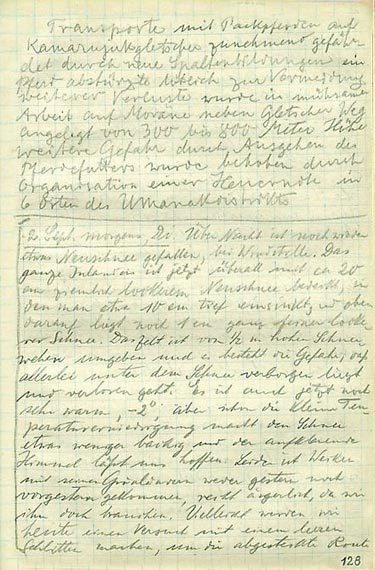 Transporte mit Packpferden auf
Kamarujukgletscher zunehmend gefähr-
det durch neue Spaltenbildungen ein
Pferd abstürzte zur Vermeidung
weiterer Verluste wurde in mühsamer
Arbeit auf Moräne neben Gletscher Weg
angelegt von 300 bis 800 Meter Höhe
weitere Gefahr durch Ausgehen des
Pferdefutters wurde behoben durch
Organisation einer Heuernte in
6 Orten des Umanakdistrikts
2. Sept. morgens, Di. Über Nacht ist noch wieder
etwas Neuschnee gefallen, bei Windstille. Das
ganze Inlandeis ist jetzt überall mit ca 20
cm ziemlich lockerem Neuschnee bedeckt, in
den man etwa 10 cm tief einsinkt, und oben
darauf liegt noch 1 cm ganz locke-
rer Schnee. Das Zelt ist von ½ m hohen Schnee-
wehen umgeben und es besteht die Gefahr, daß
allerlei unter dem Schnee verborgen liegt
und verloren geht. Es ist auch jetzt noch
sehr warm, -2°, aber schon die kleine Tem-
peraturerniedrigung macht den Schnee
etwas weniger backig und der aufklarende
Himmel läßt uns hoffen. Leider ist Weeken
mit seinen Grönländern weder gestern noch
vorgestern gekommen, recht ärgerlich, da wir
ihn doch brauchen. Vielleicht werden wir
heute einen Versuch mit einem leeren
Schlitten machen, um die abgesteckte Route
128